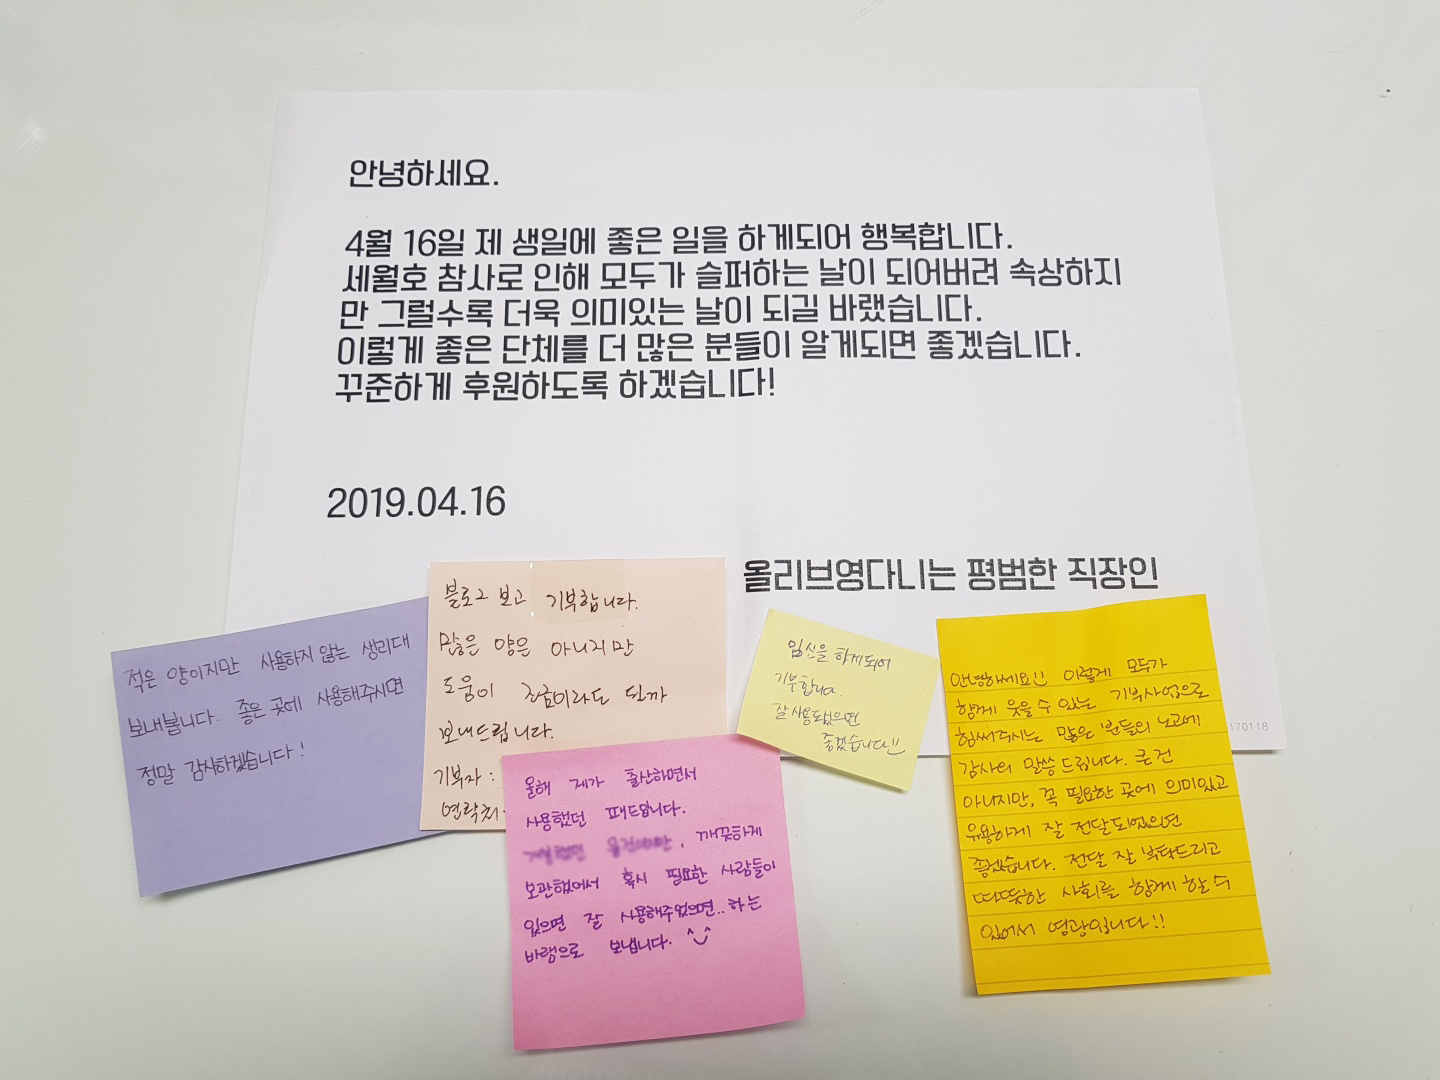 안녕하세요.
4월 16일 제 생일에 좋은 일을 하게되어 행복합니다.
세월호 참사로 인해 모두가 슬퍼하는 날이 되어버려 속상하지
만 그럴수록 더욱 의미있는 날이 되길 바랬습니다.
이렇게 좋은 단체를 더 많은 분들이 알게되면 좋겠습니다.
꾸준하게 후원하도록 하겠습니다!
2019.04.16
올리브영다니는 평범한 직장인
170118
적은 양이지만 사용하지 않는 생리대
보내봅니다. 좋은 곳에 사용해주시면
정말 감사하겠습니다!
블로그 보고 기부합니다.
많은 양은 아니지만
도움이 조금이라도 될까
보내드립니다.
기부자 :
연락처
올해 제가 출산하면서
사용했던 패드입니다.
깨끗하게
보관했어서 혹시 필요한 사람들이
있으면 잘 사용해주었으면.. 하는
바램으로 보냅니다. ^‿^
임신을 하게되어
기부합니다.
잘 사용되었으면
좋겠습니다!!
안녕하세요!! 이렇게 모두가
함께 웃을 수 있는 기부사업으로
힘써주시는 많은 분들의 노고에
감사의 말씀 드립니다. 큰건
아니지만, 꼭 필요한 곳에 의미있고
유용하게 잘 전달되었으면
좋겠습니다. 전달 잘 부탁드리고
따뜻한 사회를 함께 할 수
있어서 영광입니다!!